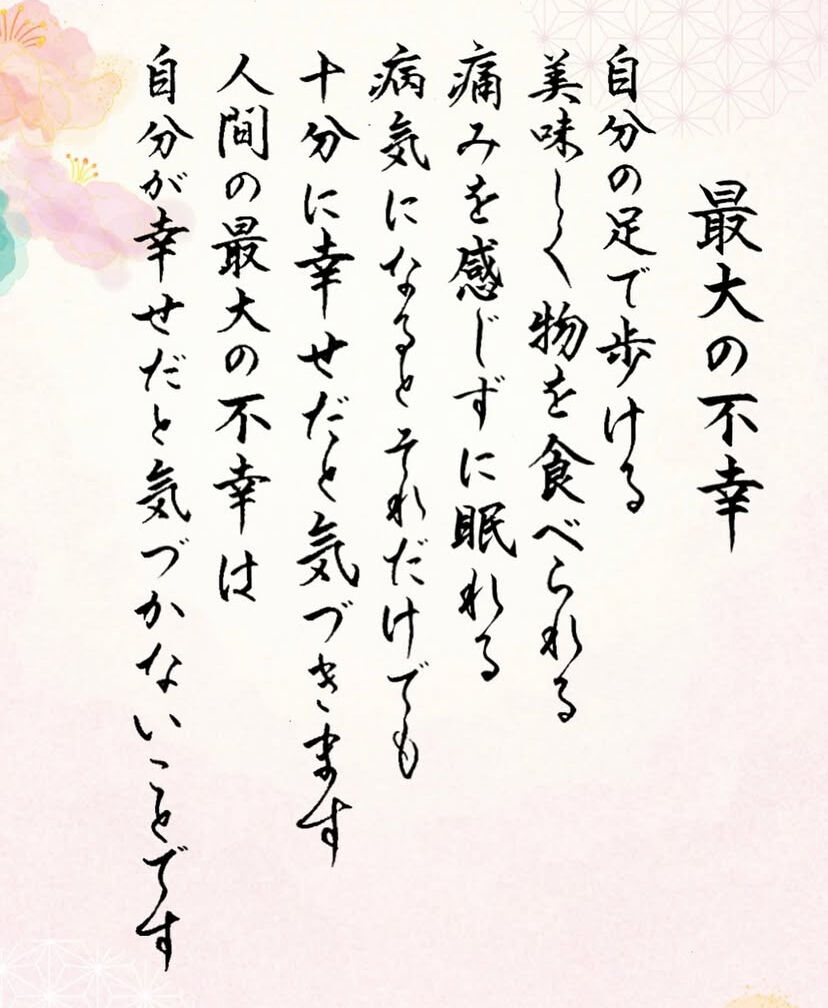 最大の不幸
自分の足で歩ける
美味しく物を食べられる
痛みを感じずに眠れる
病気になるとそれだけでも
十分に幸せだと気づきます
人間の最大の不幸は
自分が幸せだと気づかないことです